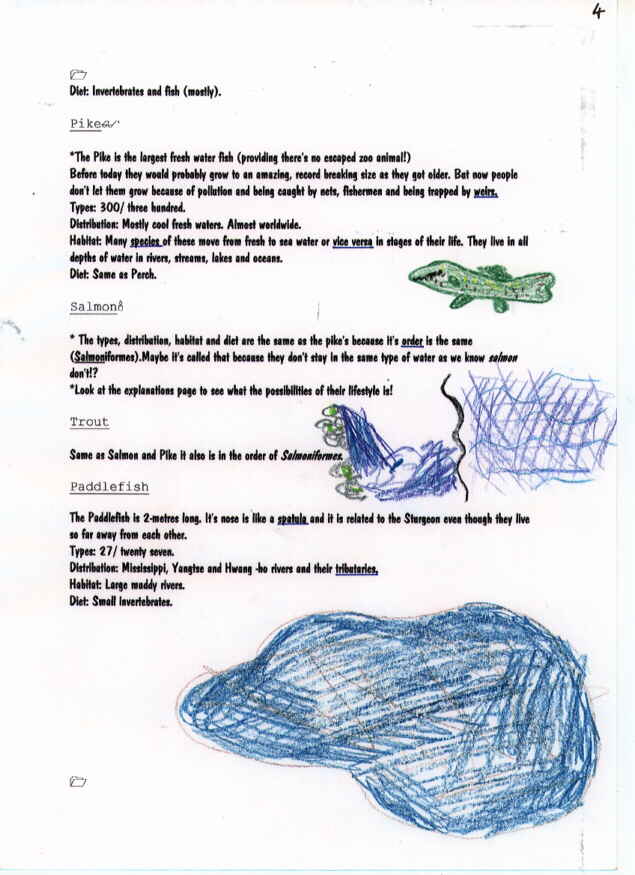 4
Diet: Invertebrates and fish (mostly).
Pike
*The Pike is the largest fresh water fish (providing there's no escaped zoo animal!)
Before today they would probably grow to an amazing, record breaking size as they got older. But now people
don't let them grow because of pollution and being caught by nets, fishermen and being trapped by weirs.
Types: 300/ three hundred.
Distribution: Mostly cool fresh waters. Almost worldwide.
Habitat: Many species of these move from fresh to sea water or vice versa in stages of their life. They live in all
depths of water in rivers, streams, lakes and oceans.
Diet: Same as Perch.
Salmon
* The types, distribution, habitat and diet are the same as the pike's because it's order is the same
(Salmoniformes).Maybe it's called that because they don't stay in the same type of water as we know salmon
don't!?
*Look at the explanations page to see what the possibilities of their lifestyle is!
Trout
Same as Salmon and Pike it also is in the order of Salmoniformes.
Paddlefish
The Paddlefish is 2-metres long. It's nose is like a spatula and it is related to the Sturgeon even though they live
so far away from each other.
Types: 27/ twenty seven.
Distribution: Mississippi, Yangtse and Hwang -ho rivers and their tributaries.
Habitat: Large muddy rivers.
Diet: Small invertebrates.